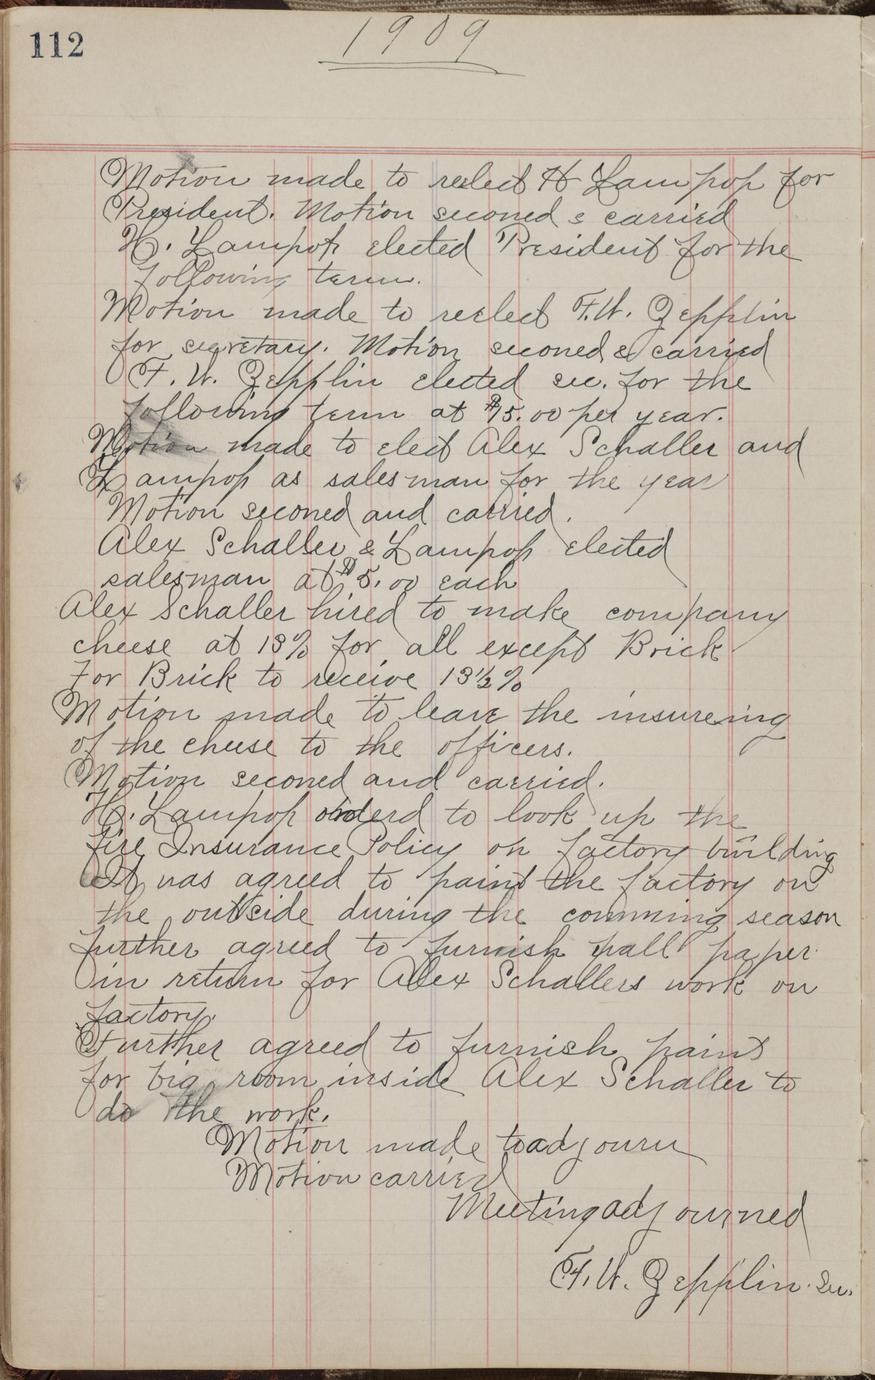 112
1909
Motion made to reelect H Lampop for
President. Motion seconed & carried
H. Lampop elected President for the
following term.
Motion made to reelect F.W. Zepplin
for segretary. Motion seconed & carried
F. W. Zepplin elected sec. for the
following term at $75.00 per year.
Motion made to elect Alex Schaller and
Lampop as salesman for the year
Motion seconed and carried.
Alex Schaller & Lampop elected
salesman at $5.00 each
Alex Schaller hired to make company
cheese at 13% for all except Brick
For Brick to receive 13½%
Motion made to leave the insurening
of the cheese to the officers.
Motion seconed and carried.
H. Lampop orderd to look up the
fire Insurance Policy on factory building
It was agreed to paint the factory on
the outside during the comming season
further agreed to furnish wall paper
in return for Alex Schallers work on
factory.
Further agreed to furnish paint
for big room inside Alex Schaller to
do the work.
Motion made to adjourn
Motion carried
Meeting adjourned
F. W. Zepplin. Sec.